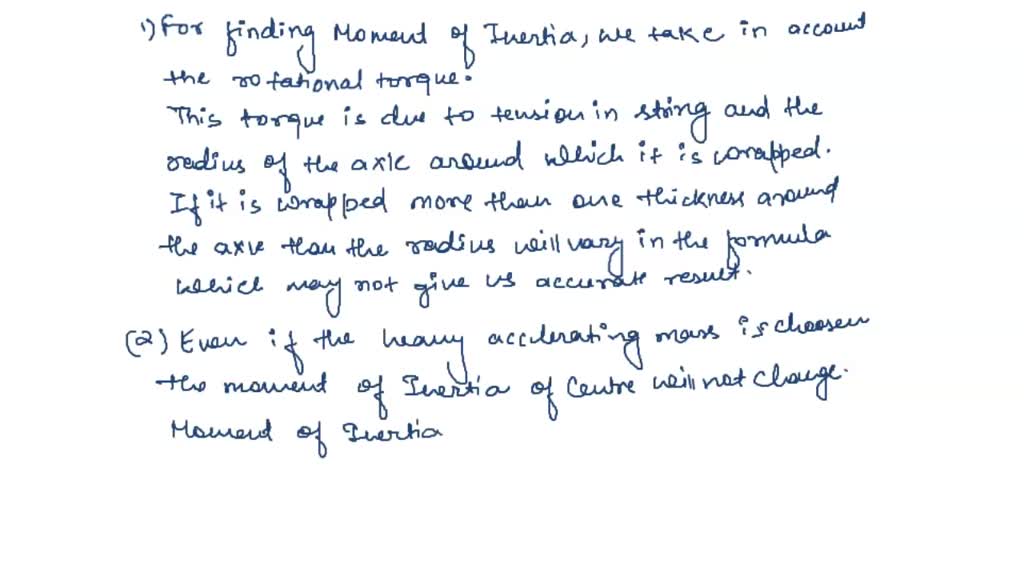 1) For finding Moment of Inertia, we take in account
the rotational torque.
This torque is due to tension in string and the
radius of the axle around which it is wrapped.
If it is wrapped more than one thickness around
the axle than the radius will vary in the formula
which may not give us accurate result.
(2) Even if the heavy acclerating mass is choosen
the moment of Inertia of Centre will not change.
Moment of Inertia